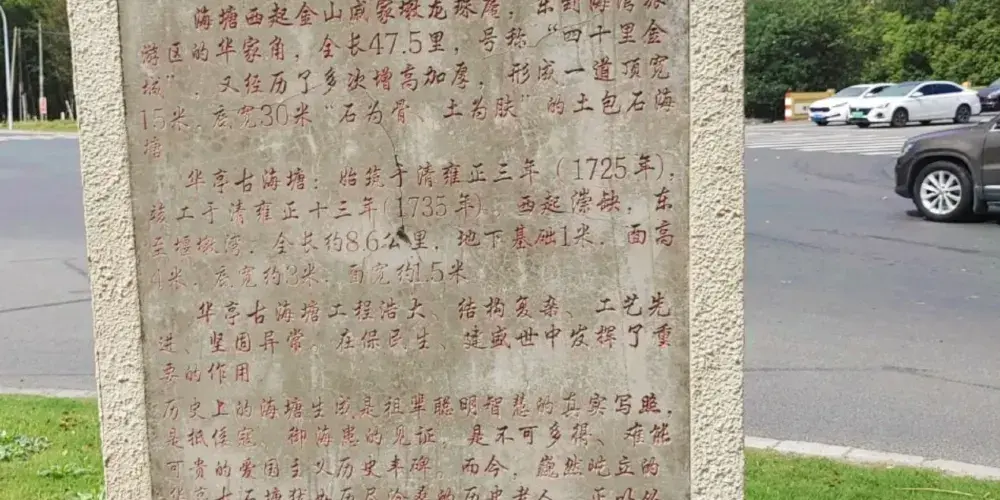 海塘西起金山戚家墩龙珠庵，东到海湾旅
游区的华家角，全长47.5里，号称“四十里金
城”，又经历了多次增高加厚，形成一道顶宽
15米，底宽30米“石为骨、土为肤”的土包石海
塘
华亭古海塘：始筑于清雍正三年（1725年）；
竣工于清雍正十三年(1735年)，西起漴缺，东
至堰墩湾，全长约8.6公里，地下基础1米，面高
4米，底宽约3米，面宽约1.5米
华亭古海塘工程浩大、结构复杂、工艺先
进、坚固异常，在保民生、建盛世中发挥了重
要的作用
历史上的海塘生成是祖辈聪明智慧的真实写照，
是抵倭寇、御海患的见证，是不可多得、难能
可贵的爱国主义历史丰碑，而今，巍然屹立的
华亭古石塘犹如历尽沧桑的历史老人，正以